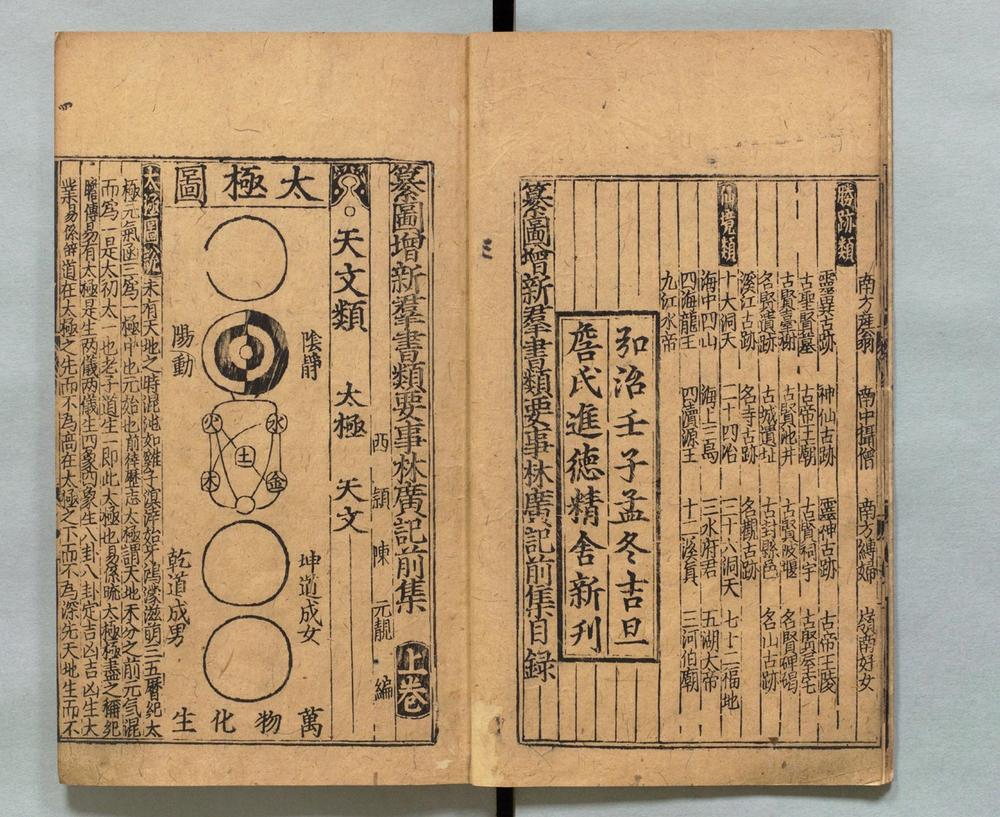 勝跡類
南方產翁 南中揖僧 南方縛婦 嶺南好女
靈異古跡 神仙古跡 靈神古跡 古帝王陵
古聖賢墓 古帝王廟 古賢祠宇 古賢屋宅
古賢臺榭 古賢池井 古賢陂堰 名賢碑碣
名賢遺跡 古城遺址 古封縣邑 名山古跡
溪江古跡 名寺古跡 名觀古跡
仙境類
十大洞天 二十四治 三十六洞天 七十二福地
海中四山 海上三島 三水府君 五湖大帝
四海龍王 四瀆源王 十二溪真 三河伯廟
九江水帝
弘治壬子孟冬吉旦
詹氏進德精舍新刊
纂圖增新羣書類要事林廣記前集目録
纂圖增新羣書類要事林廣記前集 上卷
西潁陳元靚編
天文類 太極 天文
太極圖
陰靜
陽動
水
火
土
金
木
坤道成女
乾道成男
萬物化生
太極圖說 未有天地之時混沌如雞子溟涬始牙鴻濛滋萌三五曆紀太
極元氣函三為一極中也元始也前律曆志太極謂天地未分之前元气混
而為一是太初太一也老子道生一即此太極也易係疏太極極盡之稱
易有太極是生兩儀兩儀生四象四象生八卦八卦定吉凶吉凶生大
業易係辭道在太極之先而不為高在太極之下而不為深先天地生而不
三
四